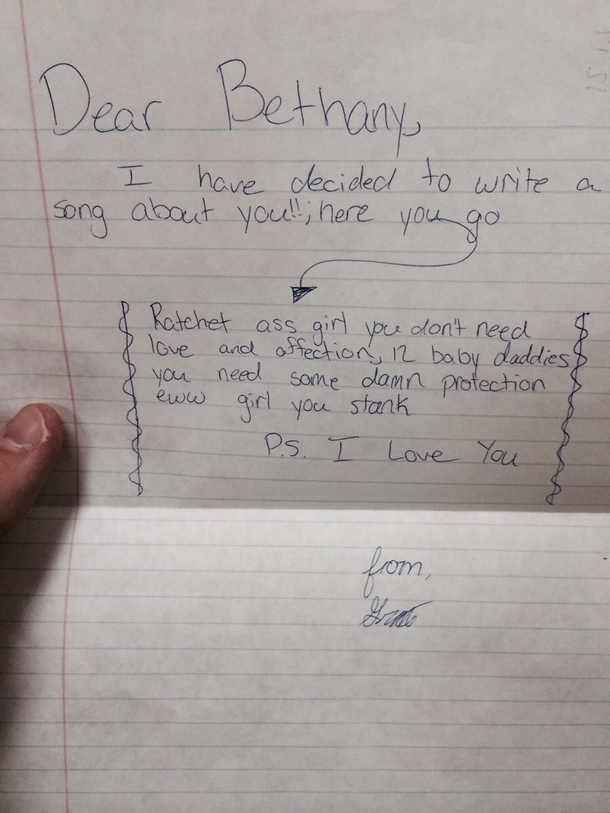 Dear Bethany,
I have decided to write a
song about you!!; here you go
Ratchet ass girl you don't need
love and affection, 12 baby daddies
you need some damn protection
eww girl you stank
P.S. I Love You
from,